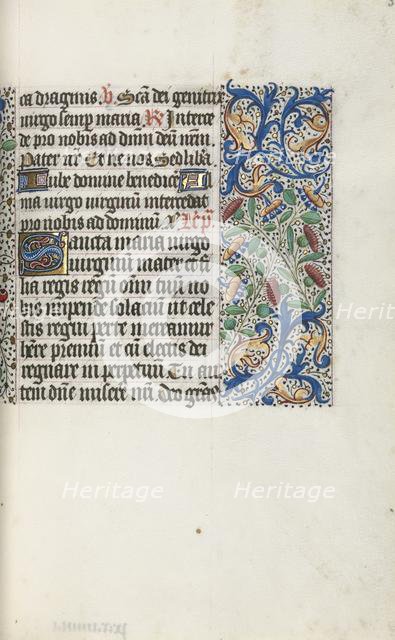 ca dragmis. V. Sca dei genitrix
virgo semp maria R Interce
de pro nobis ad dnm deu nrm
Pater nr Et ne nos Sed liba
Iube domne benedice Al
ma virgo virginum intercedat
pro nobis ad dominum
Sancta maria virgo
virginum mater et fi
lia regis regu oim tuu no
bis impende solaciu ut cele
stis regni per te mereamur
here premiu et cu electis dei
regnare in perpetuu Tu au
tem dne misere nri Deo gras
Heritage Heritage
Heritage Heritage